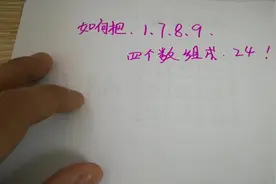 如何把.1.7.8.9.
四个数组成.24!